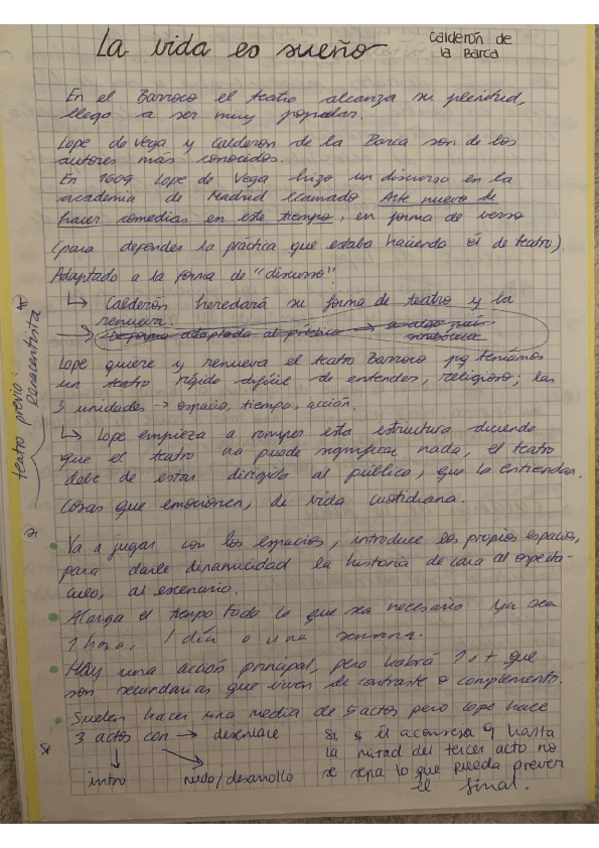 La vida es sueño
Calderón de
la Barca
En el Barroco el teatro alcanza su plenitud,
llega a ser muy popular.
Lope de Vega y Calderón de la Barca son de los
autores más conocidos.
En 1609 Lope de Vega hizo un discurso en la
academia de Madrid llamado Arte nuevo de
hacer comedias en este tiempo, en forma de verso
(para defender la práctica que estaba haciendo él de teatro).
Adaptado a la forma de "discurso"
↳ Calderón heredará su forma de teatro y la
renueva.
De forma adaptada al público → a algo más
simbólica
Lope quiere y renueva el teatro Barroco pq teníamos
un teatro rígido difícil de entender, religioso; las
3 unidades → espacio, tiempo, acción.
teatro previo:
Renacentista
↳ Lope empieza a romper esta estructura diciendo
que el teatro no puede significar nada, el teatro
debe de estar dirigido al público, que lo entiendan.
Cosas que emocionen, de vida cuotidiana.
• Va a jugar con los espacios, introduce los propios espacios,
para darle dinamicidad la historia de cara al espectá-
culo, al escenario.
• Alarga el tiempo todo lo que sea necesario ya sea
1 hora, 1 día o una semana.
• Hay una acción principal, pero habrá 1 o + que
son secundarias que viven de contraste o complemento.
• Suelen hacer una media de 5 actos pero lope hace
3 actos con → desenlace
intro
nudo/desarrollo
él aconseja q hasta
la mitad del tercer acto no
se sepa lo que pueda prever
el final.